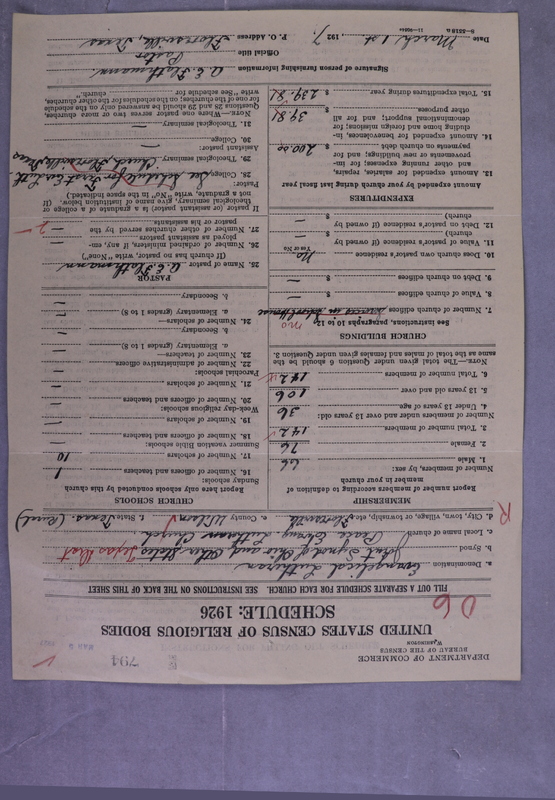 DEPARTMENT OF COMMERCE
BUREAU OF THE CENSUS
WASHINGTON
794
UNITED STATES CENSUS OF RELIGIOUS BODIES
SCHEDULE: 1926
06
FILL OUT A SEPARATE SCHEDULE FOR EACH CHURCH. SEE INSTRUCTIONS ON THE BACK OF THIS SHEET
a. Denomination Evangelical Lutheran
b. Synod Joint Synod of Ohio and Other States Texas Dist
c. Local name of church Lutheran Church
d. City, town, village, or township, etc. Floresville e. County Wilson f. State Texas. (Rural)
R
MEMBERSHIP
Report number of members according to definition of member in your church
Number of members, by sex:
1. Male 66
2. Female 76
3. Total number of members 142
Number of members under and over 13 years old:
4. Under 13 years of age 36
5. 13 years old and over 106
6. Total number of members 142
NOTE.—The total given under Question 6 should be the same as the total of males and females given under Question 3.
CHURCH BUILDINGS
See instructions, paragraphs 10 to 12
no
7. Number of church edifices services in School House
8. Value of church edifices $ —
9. Debt on church edifices $ —
10. Does church own pastor's residence No
Yes or No
11. Value of pastor's residence (if owned by church) $ —
12. Debt on pastor's residence (if owned by church) $ —
EXPENDITURES
Amount expended by your church during last fiscal year
13. Amount expended for salaries, repairs, and other running expenses; for improvements or new buildings; and for payments on church debt $ 200.00
14. Amount expended for benevolences, including home and foreign missions; for denominational support; and for all other purposes $ 39.81
15. Total expenditures during year $ 239.81
CHURCH SCHOOLS
Report here only schools conducted by this church
Sunday schools:
16. Number of officers and teachers 1
17. Number of scholars 10
Summer vacation Bible schools:
18. Number of officers and teachers —
19. Number of scholars —
Week-day religious schools:
20. Number of officers and teachers —
21. Number of scholars —
Parochial schools:
22. Number of administrative officers —
23. Number of teachers—
a. Elementary (grades 1 to 8) —
b. Secondary —
24. Number of scholars—
a. Elementary (grades 1 to 8) —
b. Secondary —
PASTOR
25. Name of pastor A. E. Flathmann
(If church has no pastor, write "None")
26. Number of ordained ministers, if any, employed as assistant pastors —
27. Number of other churches served by the pastor or his assistants 2
If pastor (or assistant pastor) is a graduate of a college or theological seminary, give name of institution below. (If not a graduate, write "No" in the space indicated.)
Pastor:
28. College See Schedule for First Ev. Luth.
29. Theological seminary Church Floresville Texas
Assistant pastor:
30. College —
31. Theological seminary —
NOTE.—Where one pastor serves two or more churches, Questions 28 and 29 should be answered only on the schedule for one of the churches; on the schedules for the other churches, write "See schedule for church."
Signature of person furnishing information A. E. Flathmann.
Official title Pastor
Date March 1st, 1927. P. O. Address Floresville, Texas